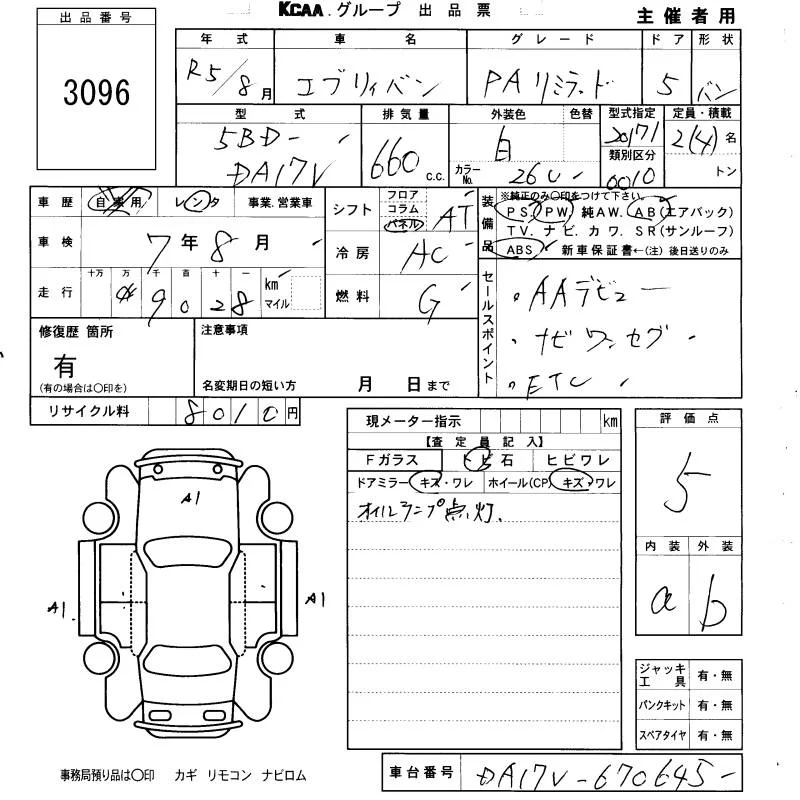 KCAA グループ 出品票
主催者用
出品番号
3096
年式 車名 グレード ドア 形状
R5/8月 エブリイバン PAリミテッド 5 バン
型式 排気量 外装色 色替 型式指定 定員・積載
5BD-DA17V 660c.c. 白 カラーNo. 26U 20171 2(4)名
類別区分
0010 トン
車歴 自家用 レンタ 事業.営業車
シフト フロア コラム パネル AT
装備品 ※純正のみ○印をつけて下さい。
PS. PW. 純AW. AB(エアバック)
TV. ナビ. カワ. SR(サンルーフ)
ABS 新車保証書←(注) 後日送りのみ
車検 7年8月
冷房 AC
走行 十万 万 千 百 十 一 km マイル
9028
燃料 G
セールスポイント
・AAデビュー
・ナビ ワンセグ
・ETC
修復歴 箇所
有
(有の場合は○印を)
注意事項
名変期日の短い方 月 日まで
リサイクル料 8010円
現メーター指示 km
【査定員記入】
Fガラス トビ石 ヒビワレ
ドアミラー キズ・ワレ ホイール(CP) キズ・ワレ
オイルランプ点灯.
評価点
5
内装 外装
a b
A1
A1
A1
ジャッキ工具 有・無
パンクキット 有・無
スペアタイヤ 有・無
事務局預り品は○印 カギ リモコン ナビロム
車台番号 DA17V-670645